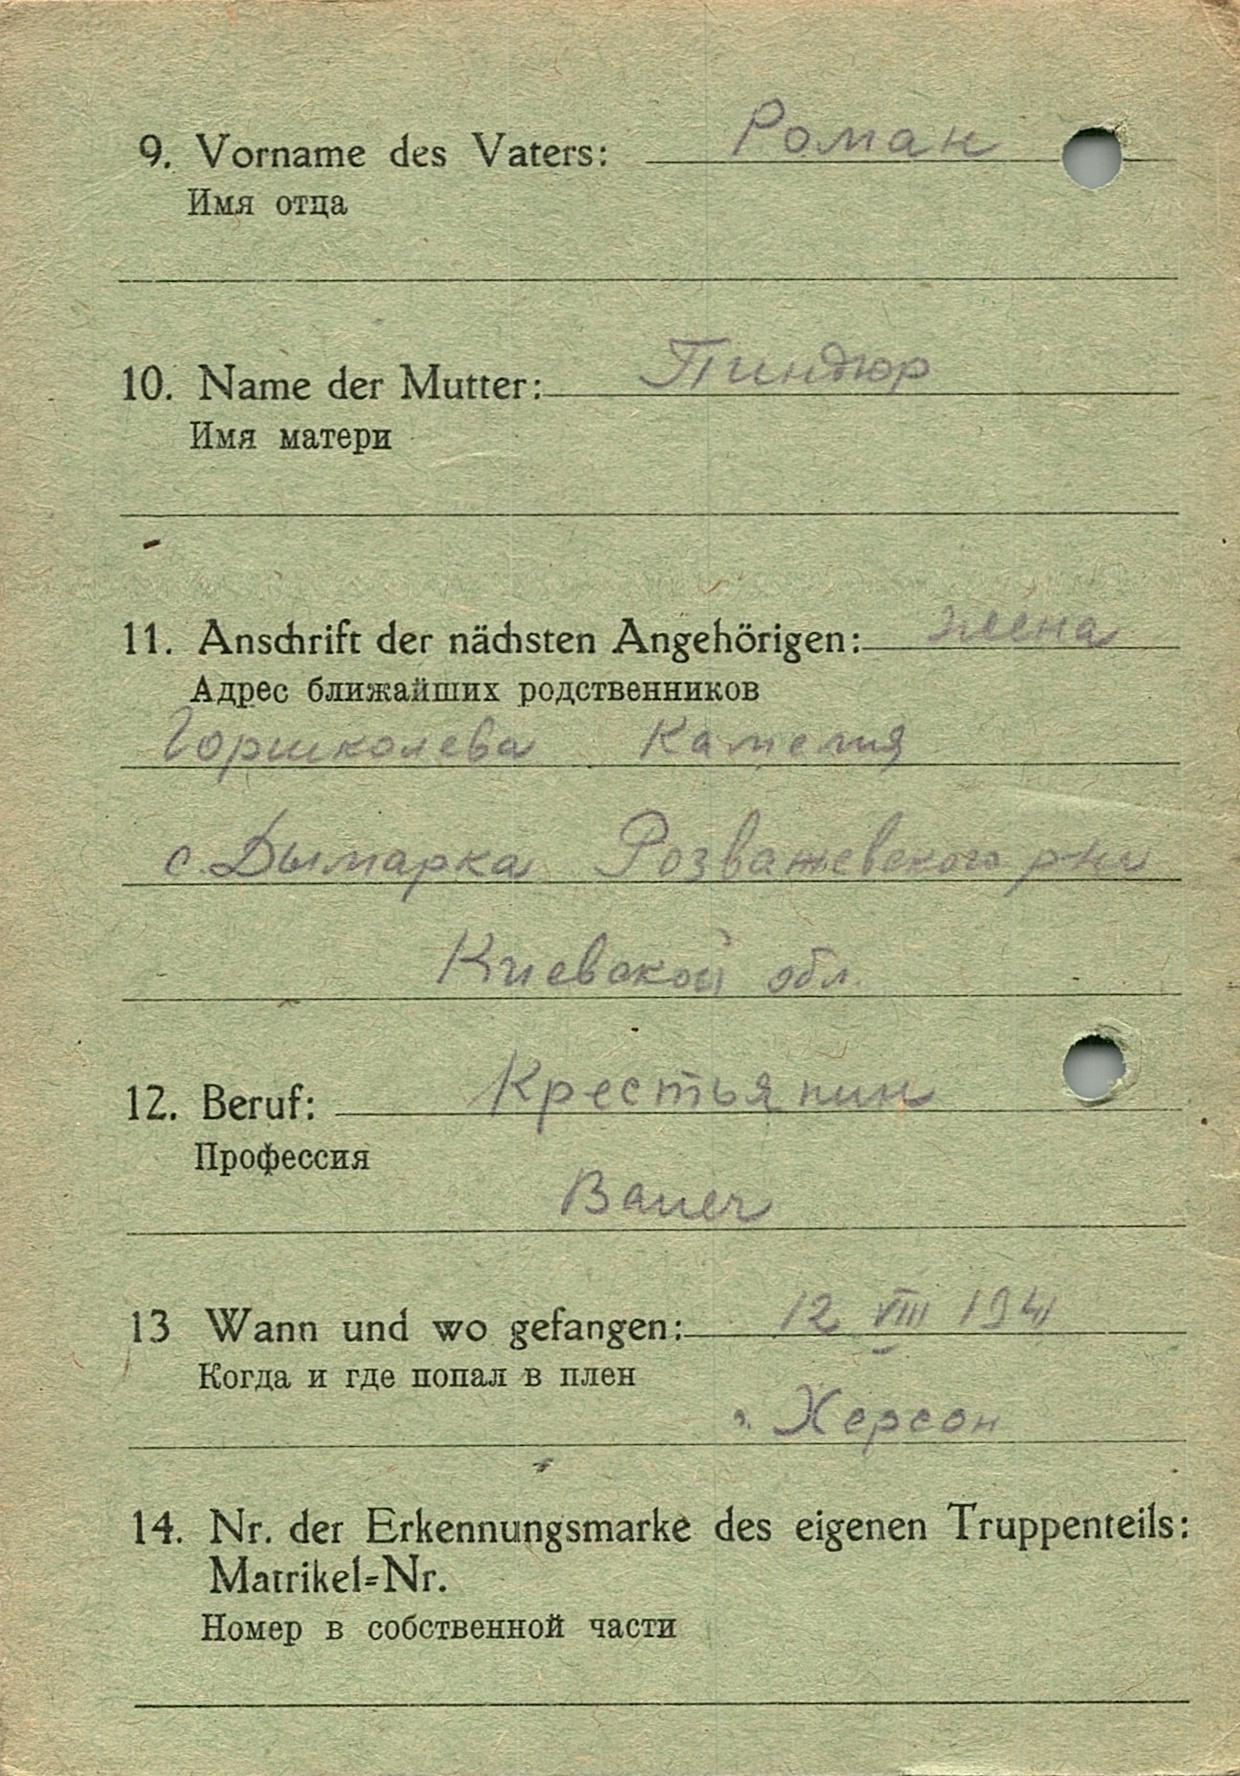 9. Vorname des Vaters: Роман
Имя отца
10. Name der Mutter: Пиндюр
Имя матери
11. Anschrift der nächsten Angehörigen:
Адрес ближайших родственников
Горшколева Камелия
с. Дымарка Розважевского р-на
Киевской обл.
12. Beruf: Крестьянин
Профессия
Bauer
13 Wann und wo gefangen: 12 VIII 1941
Когда и где попал в плен
г. Херсон
14. Nr. der Erkennungsmarke des eigenen Truppenteils:
Matrikel-Nr.
Номер в собственной части